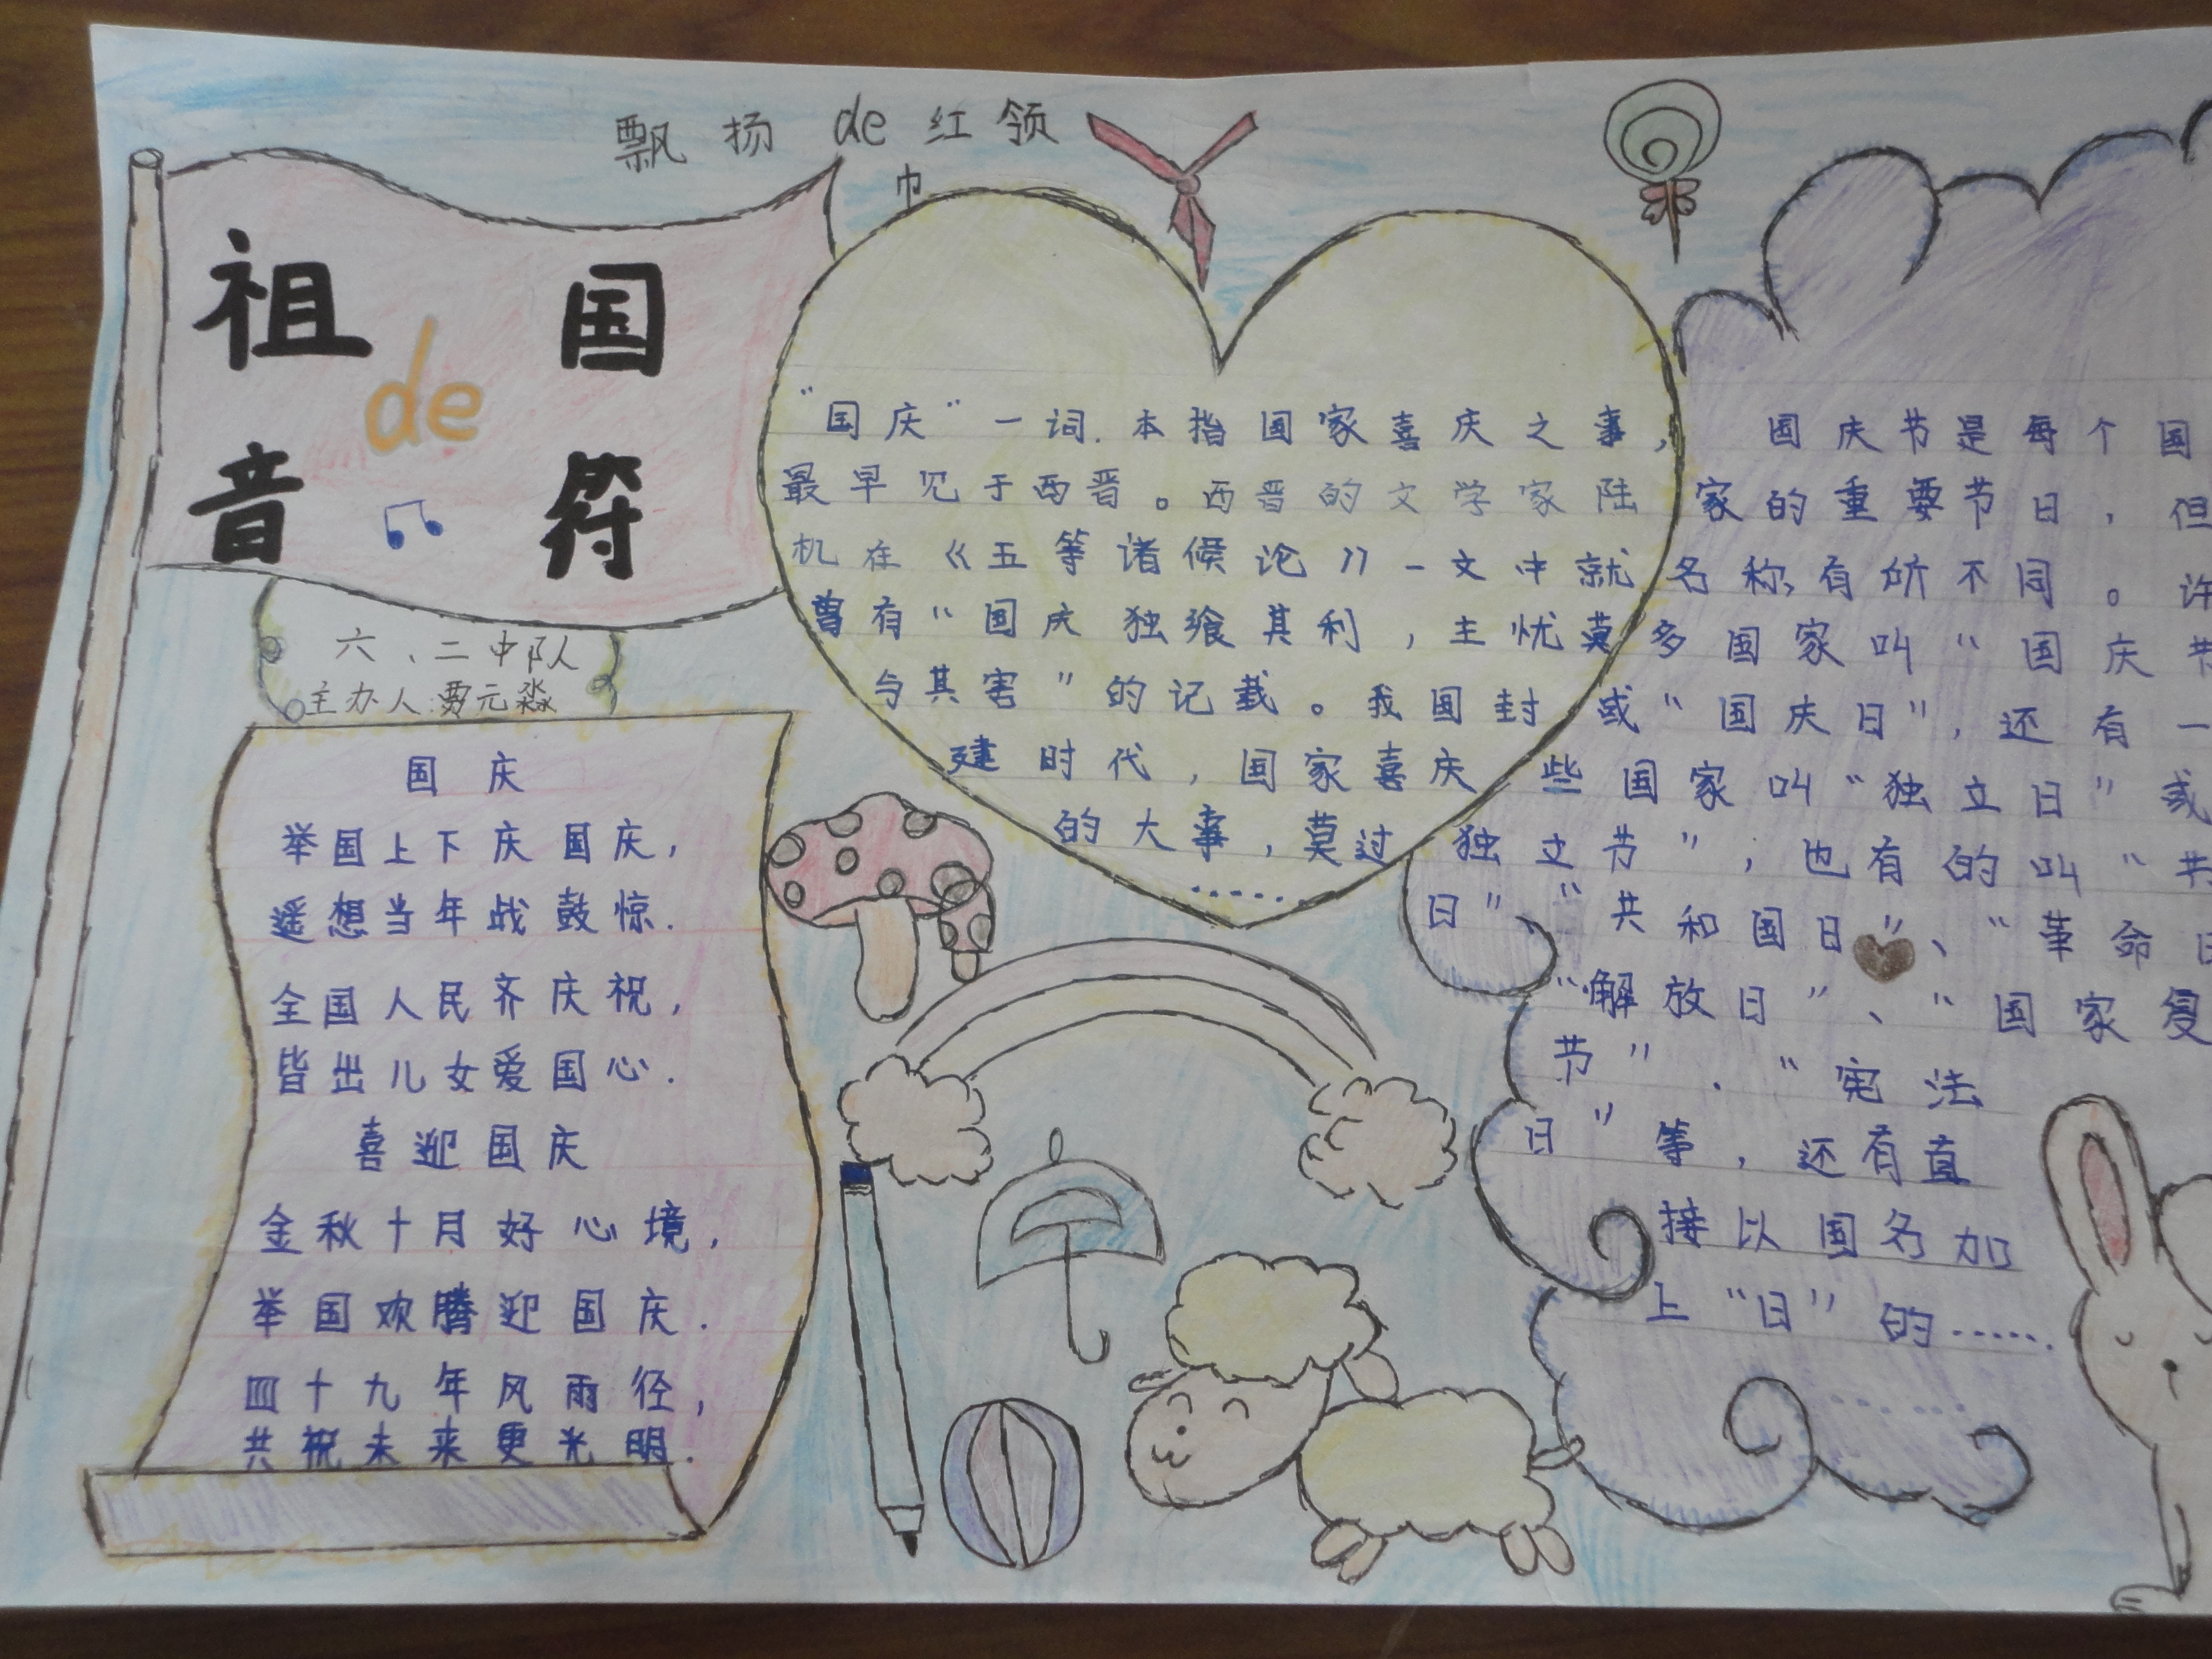 飘扬de红领
巾
祖国
de
音符
六、二中队
主办人:贾元淼
国庆
举国上下庆国庆,
遥想当年战鼓惊.
全国人民齐庆祝,
皆出儿女爱国心.
喜迎国庆
金秋十月好心境,
举国欢腾迎国庆.
四十九年风雨径,
共祝未来更光明.
“国庆”一词.本指国家喜庆之事,
最早见于西晋。西晋的文学家陆
机在《五等诸候论》一文中就
曾有“国庆独飨其利,主忧莫
与其害”的记载。我国封
建时代,国家喜庆
的大事,莫过
......
国庆节是每个国
家的重要节日,但
名称有所不同。许
多国家叫“国庆节
或“国庆日”,还有一
些国家叫“独立日”或
独立节”;也有的叫“共
日”“共和国日”、“革命日
“解放日”、“国家复
节”.“宪法
日”等,还有直
接以国名加
上“日”的......